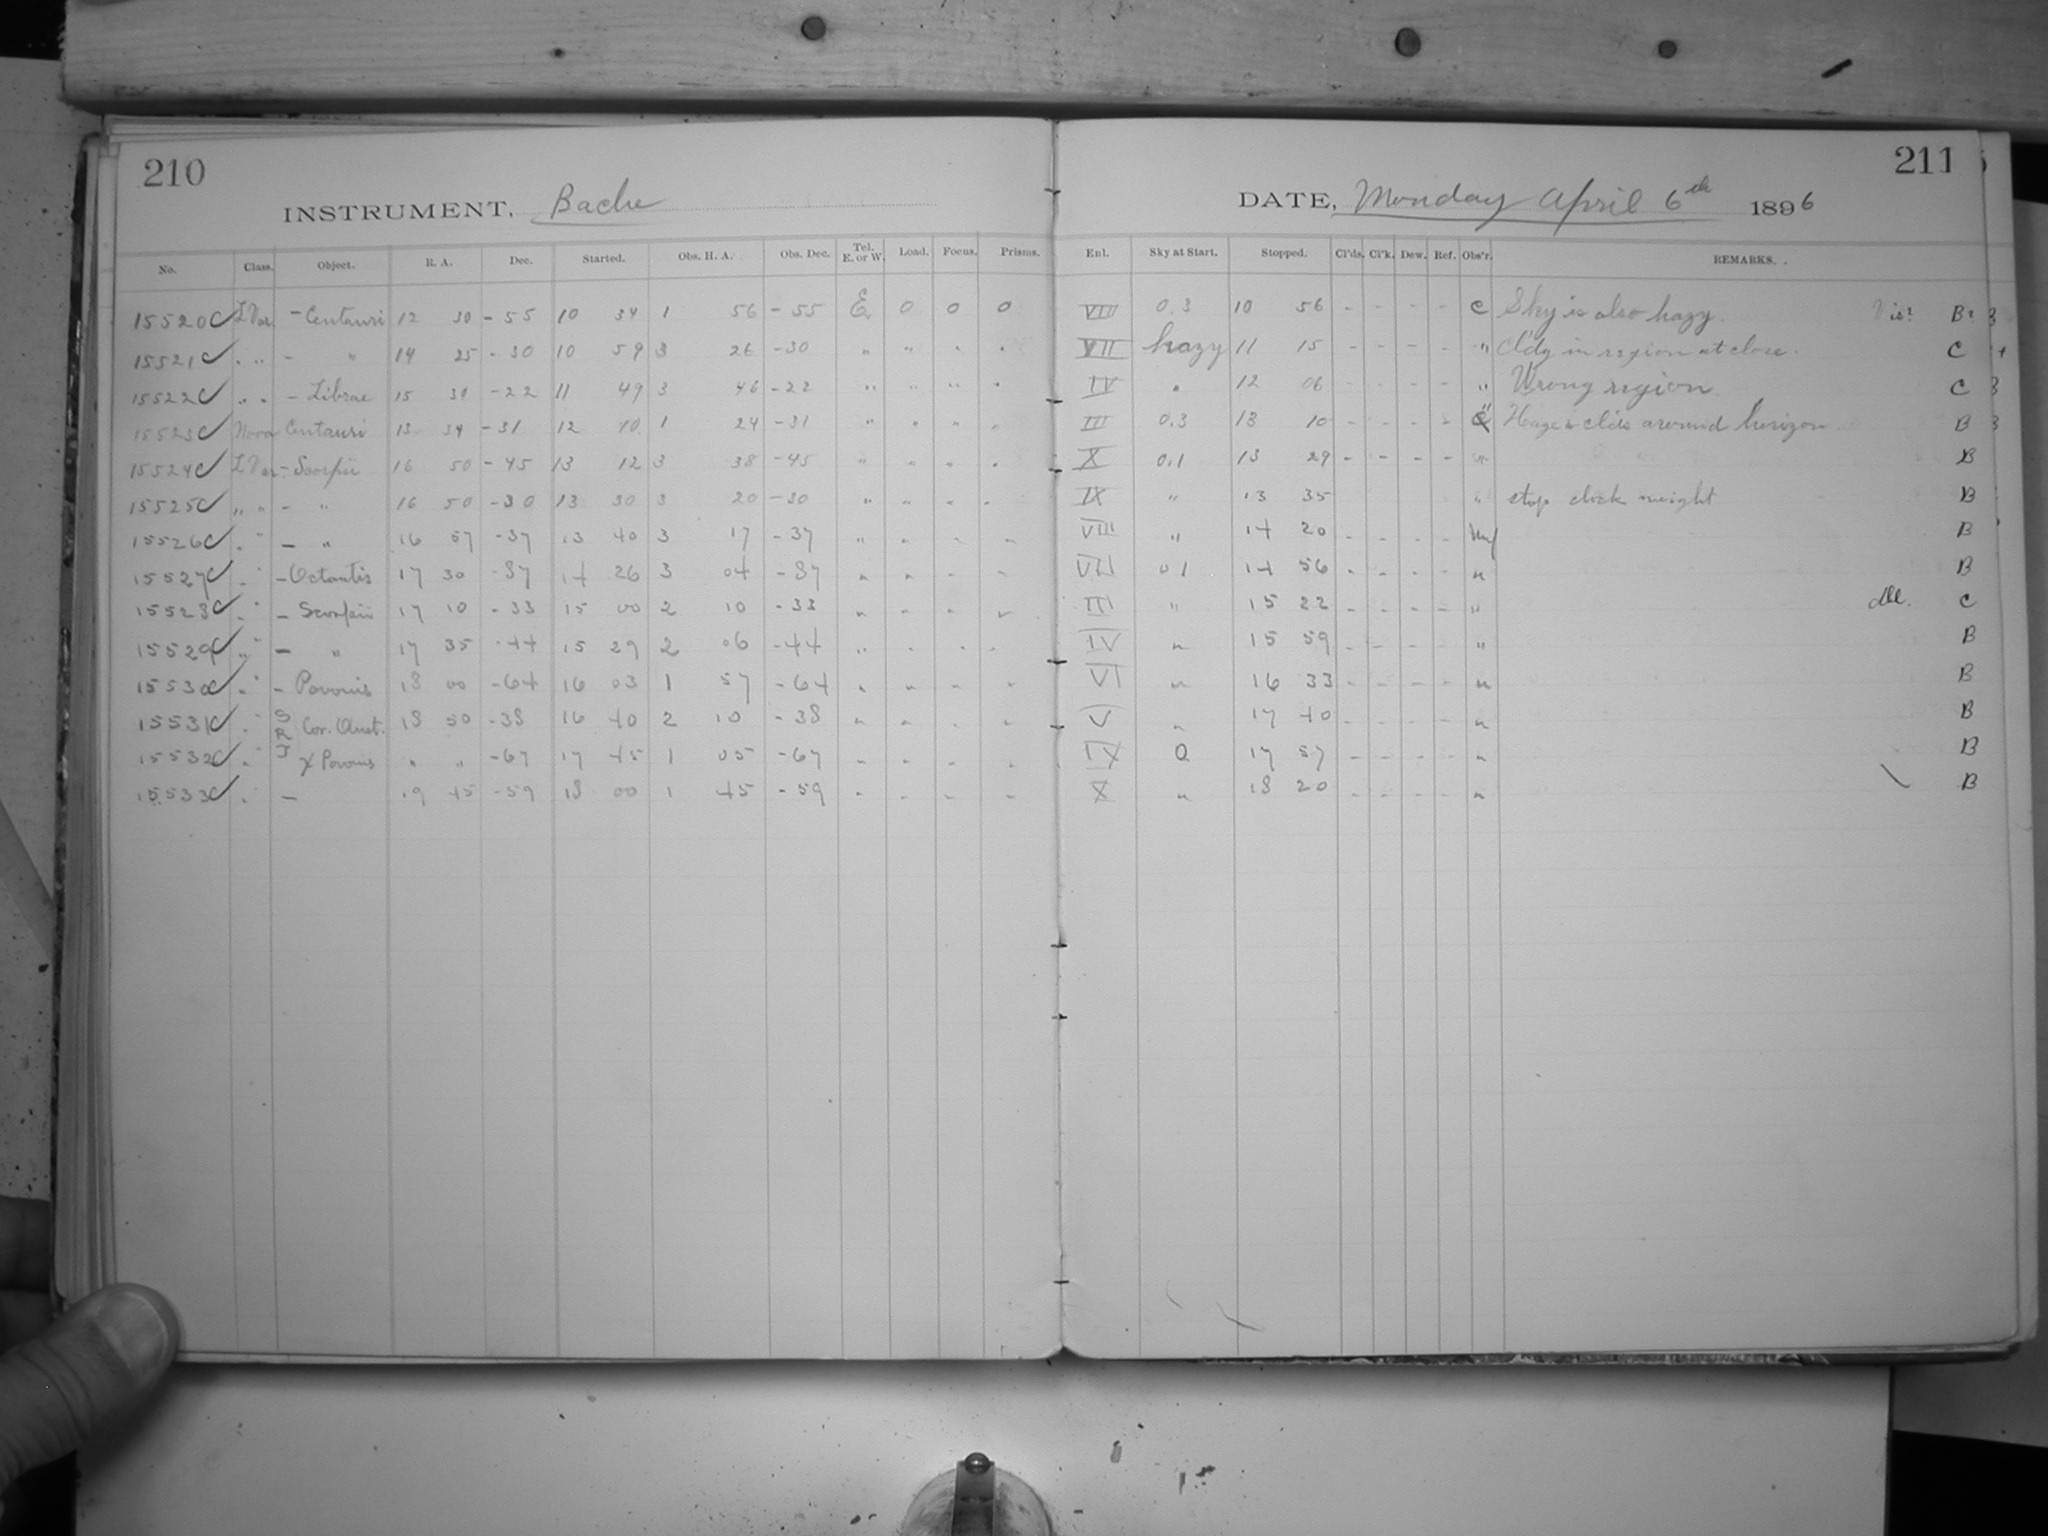 210
INSTRUMENT, Bache
No. Class. Object. R. A. Dec. Started. Obs. H. A. Obs. Dec. Tel. E. or W. Load. Focus. Prisms.
15520C ✓ L Var. - Centauri 12 30 - 55 10 34 1 56 - 55 E 0 0 0
15521C ✓ " " - " 14 25 - 30 10 59 3 26 - 30 " " " "
15522C ✓ " " - Librae 15 30 - 22 11 49 3 46 - 22 " " " "
15523C ✓ Nova Centauri 13 34 - 31 12 10 1 24 - 31 " " " "
15524C ✓ L Var. - Scorpii 16 50 - 45 13 12 3 38 - 45 " " " "
15525C ✓ " " - " 16 50 - 30 13 30 3 20 - 30 " " " "
15526C ✓ " " - " 16 57 - 37 13 40 3 17 - 37 " " " "
15527C ✓ " " - Octantis 17 30 - 87 14 26 3 04 - 87 " " " "
15528C ✓ " " - Scorpii 17 10 - 33 15 00 2 10 - 33 " " " "
15529C ✓ " " - " 17 35 - 44 15 29 2 06 - 44 " " " "
15530C ✓ " " - Pavonis 18 00 - 64 16 03 1 57 - 64 " " " "
15531C ✓ " " S R Cor. Aust. 18 50 - 38 16 40 2 10 - 38 " " " "
15532C ✓ " " T X Pavonis " " - 67 17 45 1 05 - 67 " " " "
15533C ✓ " " - 19 45 - 59 18 00 1 45 - 59 " " " "
211
DATE, Monday April 6th 1896
Enl. Sky at Start. Stopped. Cl'ds. Cl'k. Dew. Ref. Obs'r. REMARKS.
VIII 0.3 10 56 - - - - C Sky is also hazy. Vis? B?
VII hazy 11 15 - - - - " Cldy in region at close. C
IV " 12 06 - - - - " Wrong region C
III 0.3 13 10 - - - - " Haze & clds around horizon B
X 0.1 13 29 - - - - " B
IX " 13 35 " stop clock weight B
VIII " 14 20 - - - - B
VII 0 1 14 56 - - - - " B
III " 15 22 - - - - " C
IV " 15 59 - - - - " B
VI " 16 33 - - - - " B
V " 17 40 - - - - " B
IX 0 17 57 - - - - " B
X " 18 20 - - - - " B